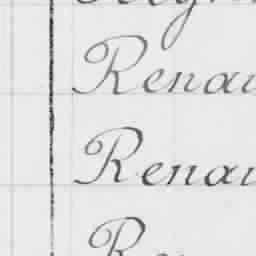 Renau
Renau
Re